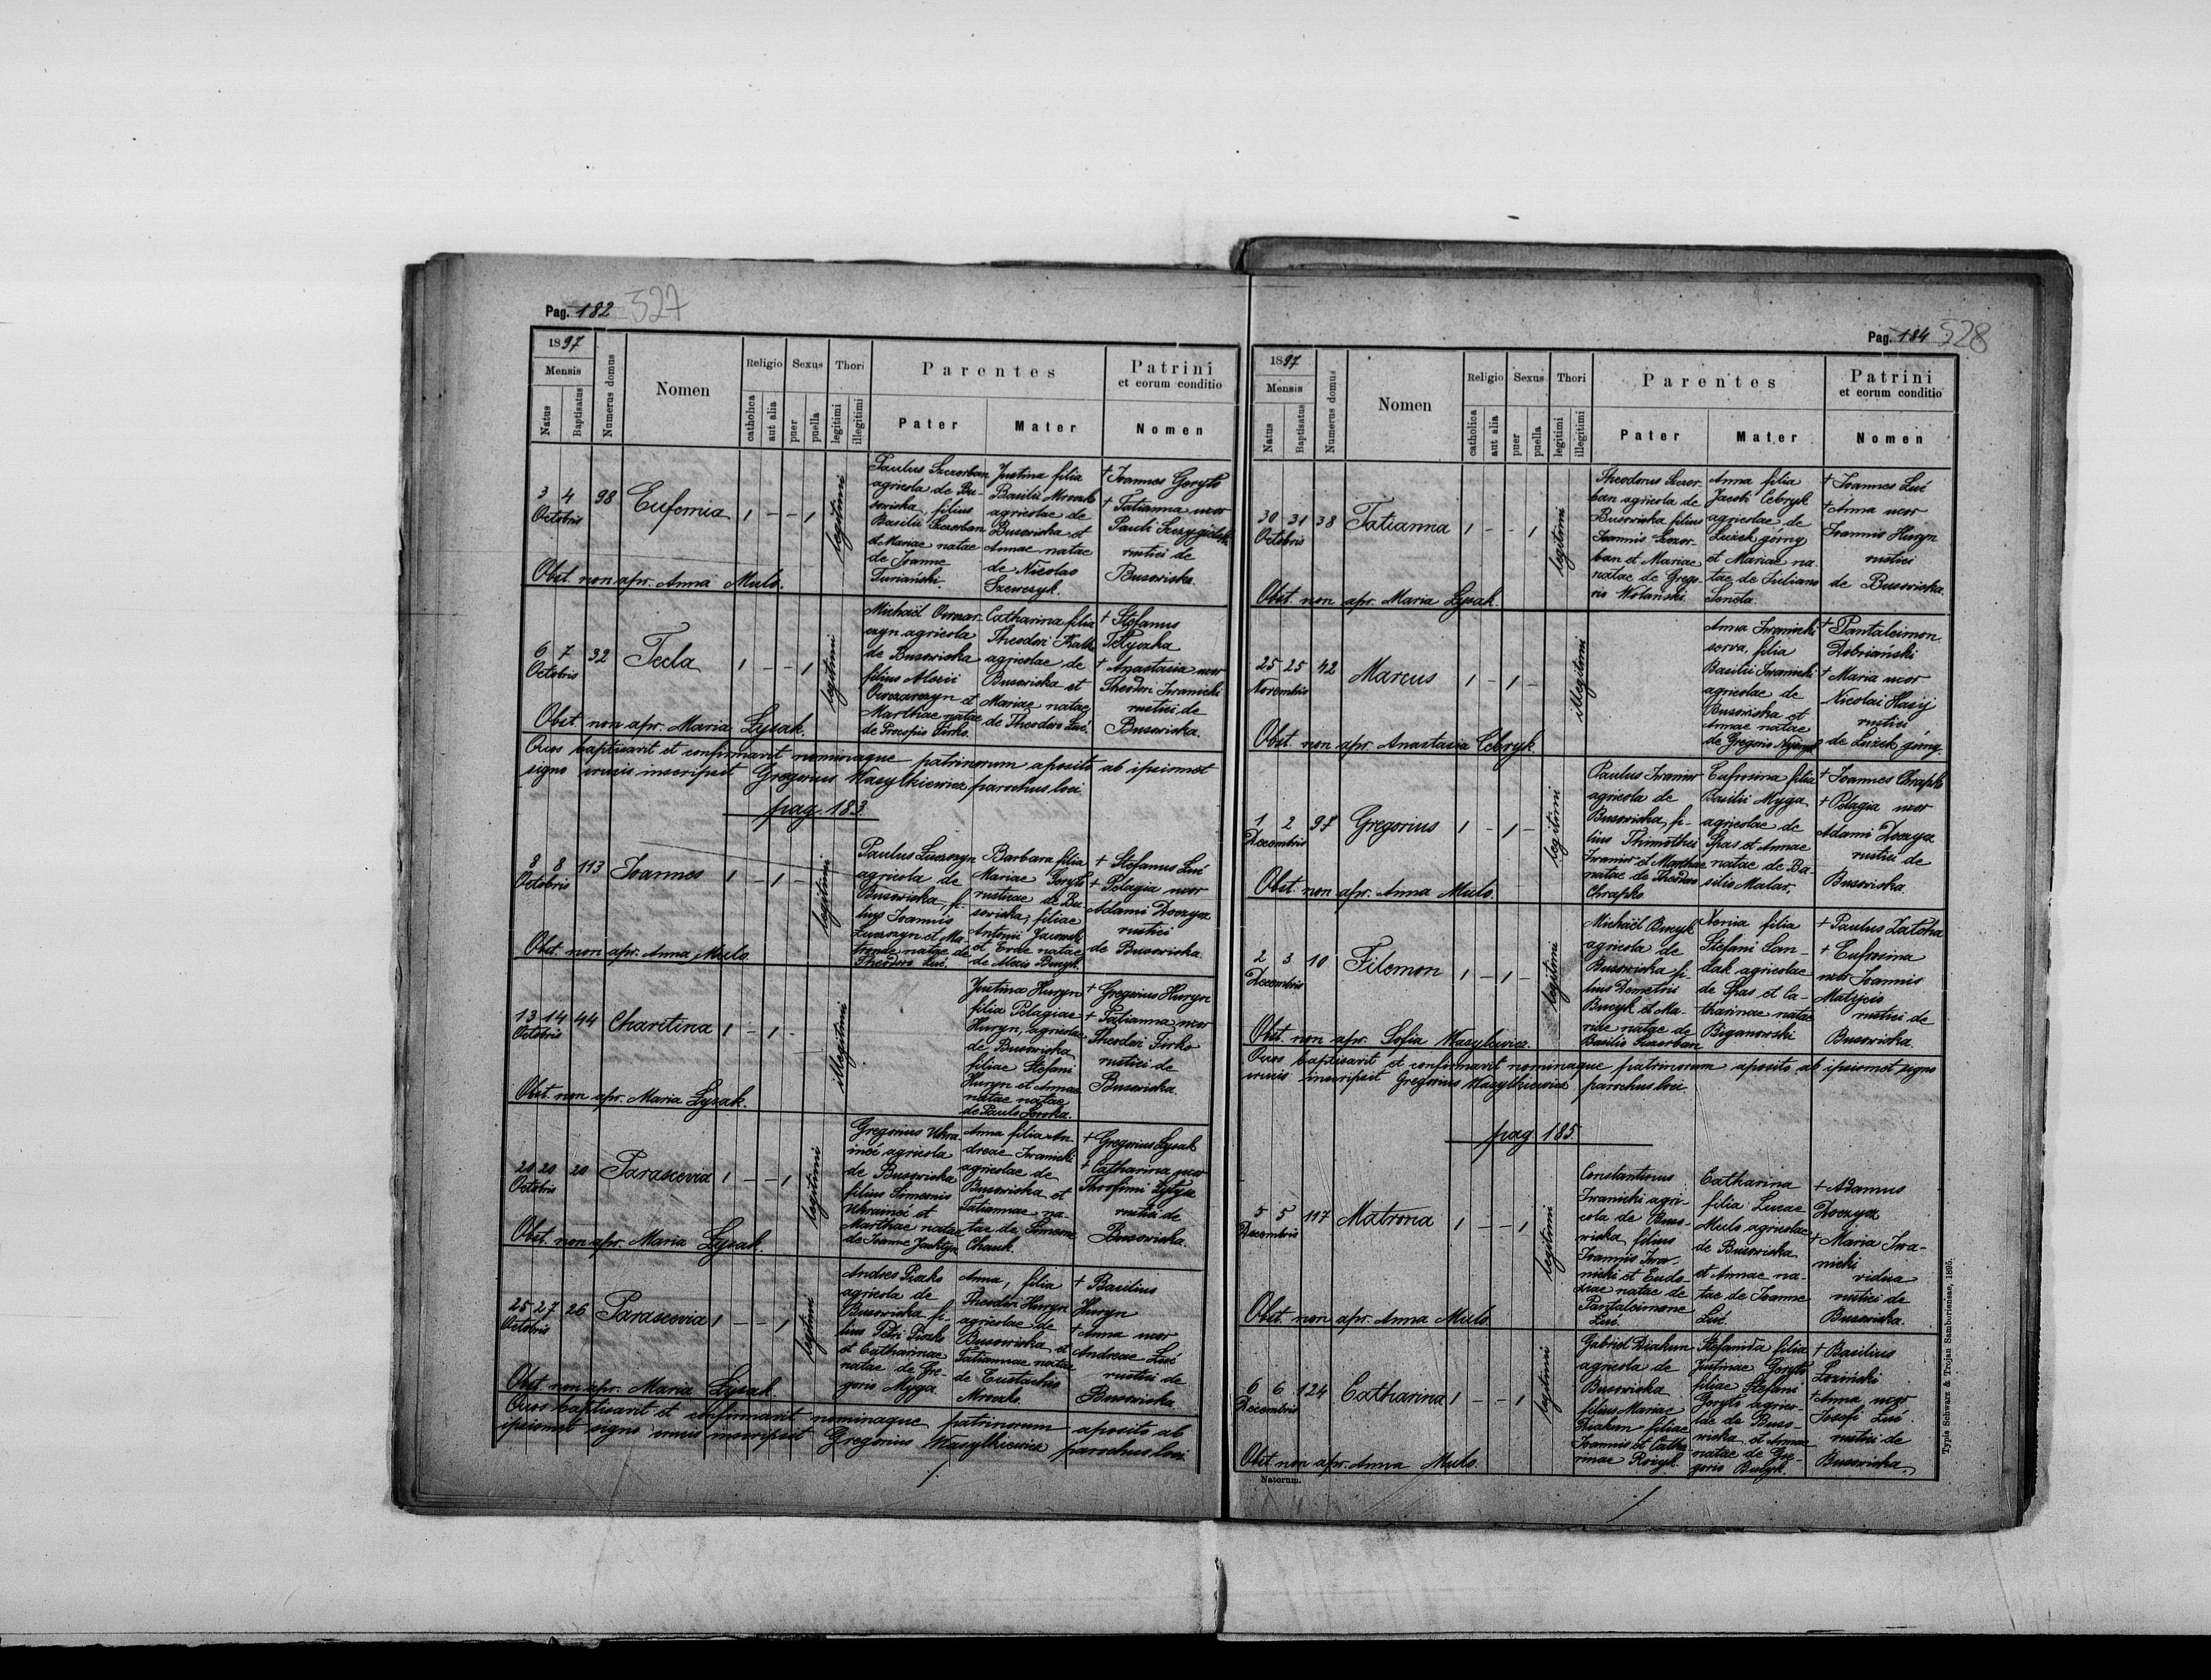 Pag. 182 527
1897
Mensis
Natus
Baptisatus
Numerus domus
Nomen
Religio
catholica
aut alia
Sexus
puer
puella
Thori
legitimi
illegitimi
Parentes
Pater
Mater
Patrini
et eorum conditio
Nomen
3 4
Octobris
98
Eufemia
1 - - 1
legitimi
Paulus Szczorban
agricola de Bu-
sowiska, filius
Basilii Szczorban
et Mariae natae
de Joanne
Turiański.
Justina filia
Basilii Mroczko
agricolae de
Busowiska et
Annae natae
de Nicolao
Szewczyk.
+ Joannes Geryto
+ Tatianna uxor
Pauli
rustici de
Busowiska.
Obst. non apr. Anna Mulo.
6 7
Octobris
32
Tecla
1 - - 1
legitimi
Michaël Owczar-
czyn agricola
de Busowiska
filius Alexii
Owczarczyn et
Marthae natae
de Procopio Firko.
Catharina filia
Theodori
agricolae de
Busowiska et
Mariae natae
de Theodoro Luć.
+ Stefanus
Tełyczka
+ Anastasia uxor
Theodori Iwanicki
rustici de
Busowiska.
Obst. non apr. Maria Łysak.
Quos baptisavit et confirmavit nominaque patrinorum aposito ab ipsismet
signo crucis inscripsit Gregorius Wasylkiewicz parochus loci.
pag. 183.
8 8
Octobris
113
Joannes
1 - 1 -
legitimi
Paulus Łuczczyn
agricola de
Busowiska, fi-
lius Joannis
Łuczczyn et Ma-
tronae natae de
Theodoro Luć.
Barbara filia
Mariae Geryto
rusticae de Bu-
sowiska, filiae
Antonii Jacowski
et Evae natae
de Alexio Bucyk.
+ Stefanus Luć
+ Pelagia uxor
Adami Doczya
rustici
de Busowiska.
Obst. non apr. Anna Mulo.
13 14
Octobris
44
Charitina
1 - 1 -
illegitimi
Justina Huryn
filia Pelagiae
Huryn, agricolae
de Busowiska
filiae Stefani
Huryn et Annae
natae natae
de Paulo
+ Gregorius Huryn
+ Tatianna uxor
Theodori Firko
rustici de
Busowiska.
Obst. non apr. Maria Łysak.
20 20
Octobris
20
Parascevia
1 - - 1
legitimi
Gregorius Ukra-
ineć agricola
de Busowiska
filius Simeonis
Ukraineć et
Marthae natae
de Joanne
Anna filia An-
dreae Iwanicki
agricolae de
Busowiska et
Tatiannae na-
tae de Simeone
Chauk.
+ Gregorius Łysak
+ Catharina uxor
Throfimi
rustici de
Busowiska.
Obst. non apr. Maria Łysak.
25 27
Octobris
26
Parascevia
1 - - 1
legitimi
Andreas Piszko
agricola de
Busowiska fi-
lius Petri Piszko
et Catharinae
natae de Gre-
gorio Myga.
Anna, filia
Theodori Huryn
agricolae de
Busowiska et
Tatiannae natae
de Eustachio
Mroczko.
+ Basilius
Huryn
+ Anna uxor
Andreae Luć
rustici de
Busowiska
Obst. non apr. Maria Łysak.
Quos baptisavit et confirmavit nominaque patrinorum aposito ab
ipsismet signo crucis inscripsit Gregorius Wasylkiewicz parochus loci.
Pag. 184 528
1897
Mensis
Natus
Baptisatus
Numerus domus
Nomen
Religio
catholica
aut alia
Sexus
puer
puella
Thori
legitimi
illegitimi
Parentes
Pater
Mater
Patrini
et eorum conditio
Nomen
30 31
Octobris
38
Tatianna
1 - - 1
legitimi
Theodorus Szczor-
ban agricola de
Busowiska filius
Joannis Szczor-
ban et Mariae
natae de Grego-
rio Wolański.
Anna filia
Jacobi Cebryk
agricolae de
Łużek gorny
et Mariae na-
tae de Juliano
Senola.
+ Joannes Luć
+ Anna uxor
Joannis Huryn
rustici
de Busowiska.
Obst. non apr. Maria Łysak.
25 25
Novembris
42
Marcus
1 - 1 -
illegitimi
Anna Iwanicki
serva, filia
Basilii Iwanicki
agricolae de
Busowiska et
Annae natae
de Gregorio
+ Pantaleimon
Dobriański
+ Maria uxor
Nicolai Hasij
rustici
de Łużek górny.
Obst. non apr. Anastasia Cebryk.
1 2
Decembris
97
Gregorius
1 - 1 -
legitimi
Paulus Iwaniw
agricola de
Busowiska, fi-
lius Thimothei
Iwaniw et Marthae
natae de Theodoro
Chrapko.
Eufrosina filia
Basilii Myga
agricolae de
Spas et Annae
natae de Ba-
silio Malar.
+ Joannes Chrapko
+ Pelagia uxor
Adami Doczya
rustici de
Busowiska
Obst. non apr. Anna Mulo.
2 3
Decembris
10
Filemon
1 - 1 -
legitimi
Michaël Bucyk
agricola de
Busowiska fi-
lius Demetrii
Bucyk et Ma-
riae natae de
Basilio Szczorban
Xenia filia
Stefani San-
dak agricolae
de Spas et Ca-
tharinae natae
Biganowski
+ Paulus Łatoha
+ Eufrosina
uxor Joannis
Matycio
rustici de
Busowiska.
Obst. non apr. Sofia Wasylkiewicz.
Quos baptisavit et confirmavit nominaque patrinorum aposito ab ipsismet signo
crucis inscripsit Gregorius Wasylkiewicz parochus loci.
pag. 185.
5 5
Decembris
117
Matrona
1 - - 1
legitimi
Constantinus
Iwanicki agri-
cola de Buso-
wiska, filius
Joannis Iwa-
nicki et Eudo-
xiae natae de
Pantaleimone
Luć.
Catharina
filia Lucae
Mulo agricolae
de Busowiska
et Annae na-
tae de Joanne
Luć.
+ Adamus
Doczya
+ Maria Iwa-
nicki
vidua
rustici de
Busowiska.
Obst. non apr. Anna Mulo.
6 6
Decembris
124
Catharina
1 - - 1
legitimi
Gabriel Diakun
agricola de
Busowiska
filius Mariae
Diakun filiae
Joannis et Catha-
rinae
Stefanida filia
Justinae Geryto
filiae Stefani
Geryto agrico-
lae de Buso-
wiska, et Annae
natae de Gre-
gorio
+ Basilius
Łoziński
+ Anna uxor
Josefi Luć.
rustici de
Busowiska.
Obst. non apr. Anna Mulo.
Natorum.
Typis Schwarz & Trojan Samboriensae, 1895.